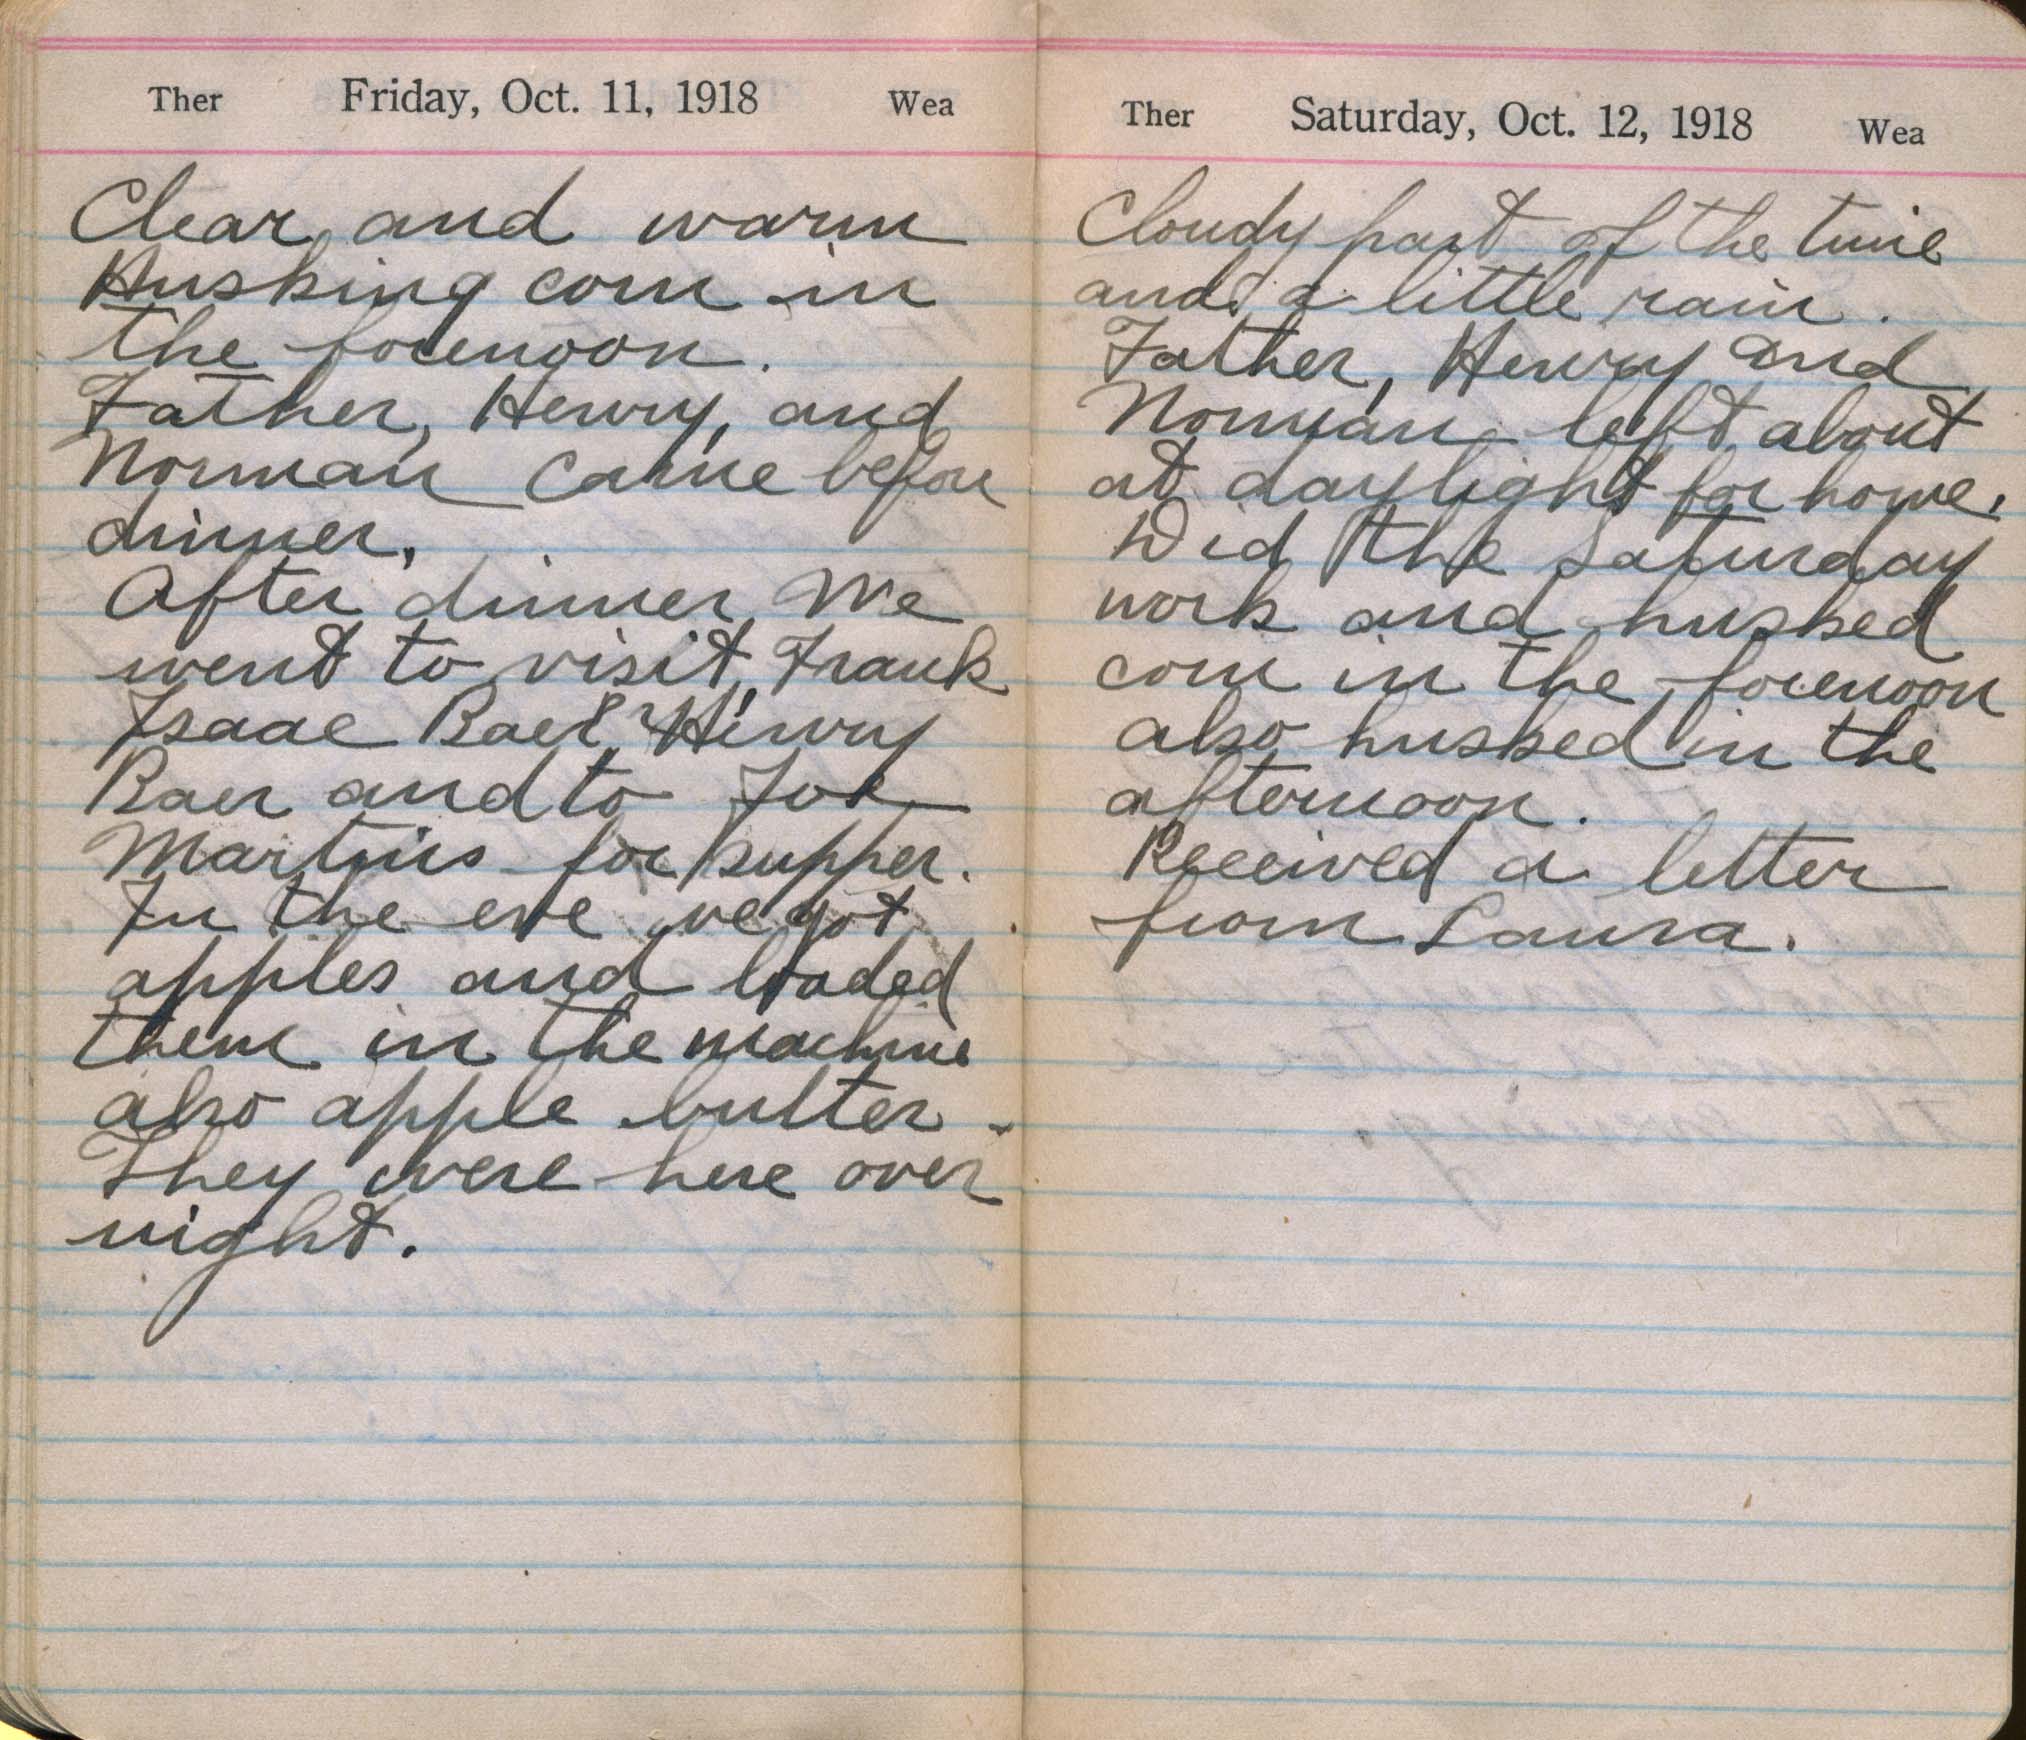 Ther Friday, Oct. 11, 1918 Wea
Clear and warm
Husking corn in
the forenoon.
Father, Henry, and
Norman came before
dinner.
After dinner we
went to visit, Frank
Isaac Baer, Henry
Baer and to Joe
Martins for supper.
In the eve we got
apples and loaded
them in the machine
also apple butter.
They were here over
night.
Ther Saturday, Oct. 12, 1918 Wea
Cloudy part of the time
and a little rain.
Father, Henry and
Norman left about
at daylight for home.
Did the Saturday
work and husked
corn in the forenoon
also husked in the
afternoon.
Received a letter
from Laura.